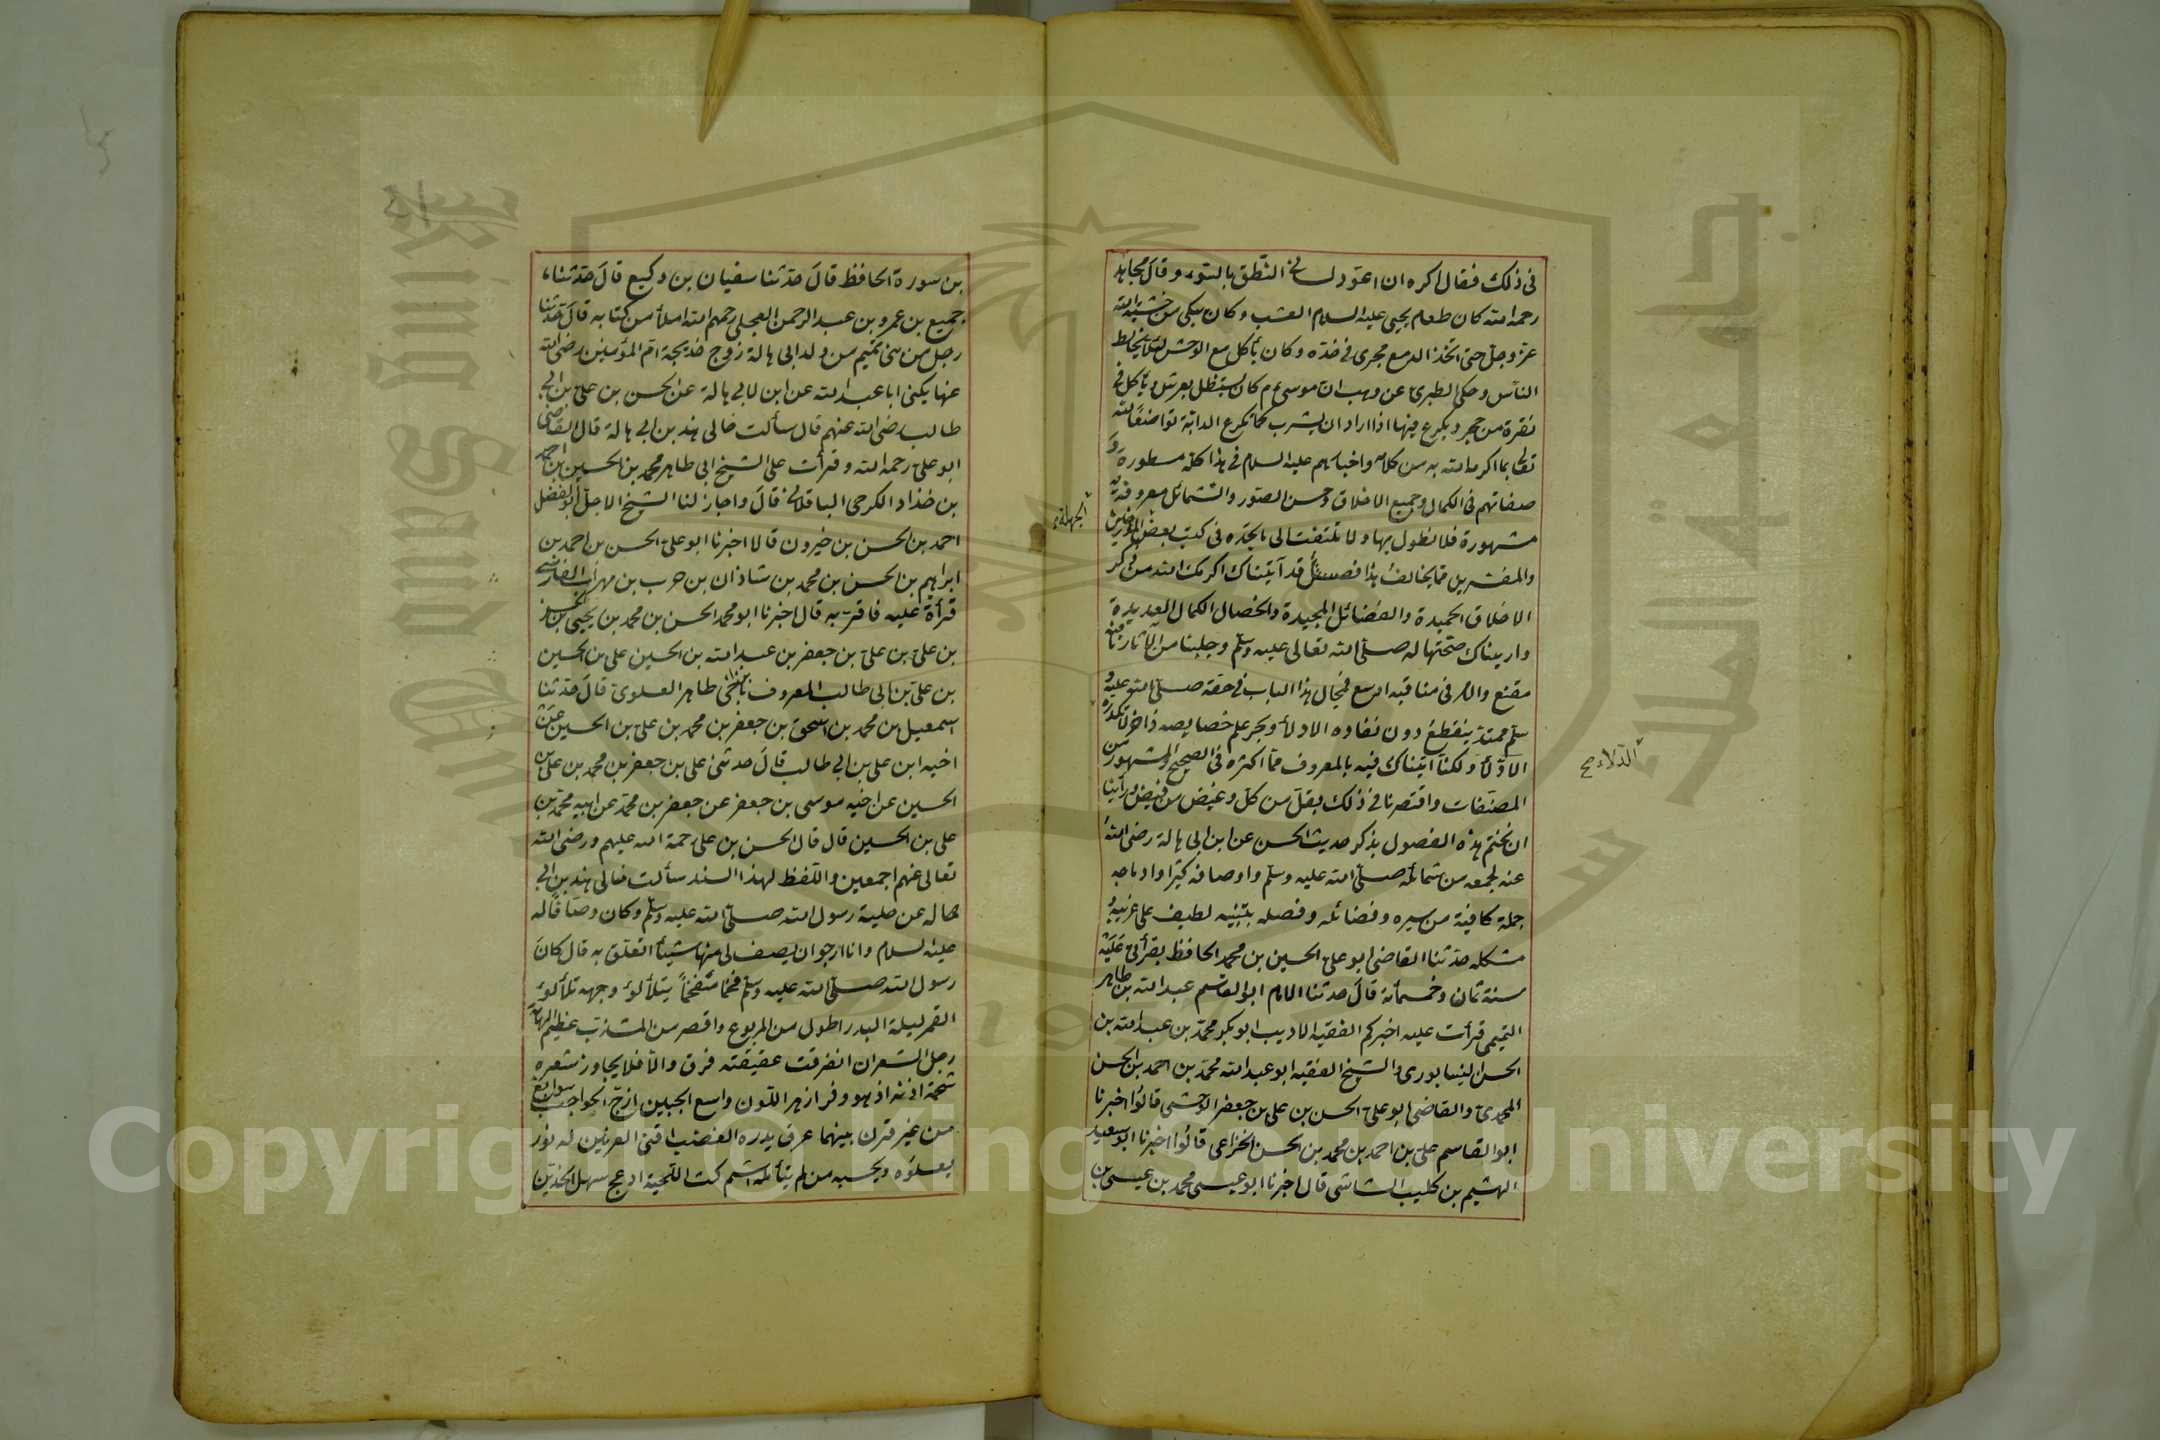 فى ذلك فقال اكره ان اعود لسانى النطق بالسوء وقال مجاهد
رحمه الله كان طعام يحيى عليه السلام العشب وكان يبكى من خشية الله
عز وجل حتى اتخذ الدمع مجرى فى خده وكان يأكل مع الوحش لئلا يخالط
الناس وحكى الطبرى عن وهب ان موسى عم كان يستظل بعريش ويأكل فى
نقرة من حجر ويكرع فيها اذا اراد ان يشرب كما تكرع الدابة تواضعا لله
تعالى بما اكرمه الله به من كلامه واخبارهم عليه السلام فى هذا كله مسطورة و
صفاتهم فى الكمال وجميع الاخلاق وحسن الصور والشمائل معروفة
مشهورة فلا نطول بها ولا تلتفت الى ما تجده فى كتب بعض المؤرخين
الجهلة
والمفسرين مما يخالف هذا فصل قد آتيناك اكرمك الله من ذكر
الاخلاق الحميدة والفضائل المجيدة والخصال الكمال العديدة
واريناك صحتها له صلى الله تعالى عليه وسلم وجلبنا من الآثار ما فيه
مقنع والامر فى مناقبه اوسع فمجال هذا الباب فى حقه صلى الله عليه و
سلم ممتد ينقطع دون نفاده الادلاء وبحر علم خصايصه ذاخر لا تكدره
الدلاء صح
الادلاء ولكنا اتيناك فيه بالمعروف مما اكثره فى الصحيح والمشهور من
المصنفات واقتصرنا فى ذلك بقل من كل وغيض من فيض ورأينا
ان نختم هذه الفصول بذكر حديث الحسن عن ابن ابى هالة رضى الله
عنه لجمعه من شمائله صلى الله عليه وسلم واوصافه كثيرا وادماجه
جملة كافية من سيره وفضائله وفصله بتنبيه لطيف على غريبه و
مشكله حدثنا القاضى ابو على الحسين بن محمد الحافظ بقرأتى عليه
سنة ثمان وخمسمائة قال حدثنا الامام ابو القاسم عبد الله بن طاهر
التميمى قرأت عليه اخبركم الفقيه الاديب ابو بكر محمد بن عبد الله بن
الحسن النيسابورى والشيخ الفقيه ابو عبد الله محمد بن احمد بن الحسن
المحمدى والقاضى ابو على الحسن بن على بن جعفر الوحشى قالوا اخبرنا
ابو القاسم على بن احمد بن محمد بن الحسن الخزاعى قالوا اخبرنا ابو سعيد
الهشيم بن كليب الشاشى قال اخبرنا ابو عيسى محمد بن عيسى بن
بن سورة الحافظ قال حدثنا سفيان بن وكيع قال حدثنا
جميع بن عمرو بن عبد الرحمن العجلى رحمهم الله املأ من كتابه قال حدثنا
رجل من بنى تميم من ولد ابى هالة زوج خديجة ام المؤمنين رضى الله
عنها يكنى ابا عبد الله عن ابن لابى هالة عن الحسن بن على بن ابى
طالب رضى الله عنهم قال سألت خالى هند بن ابى هالة قال القاضى
ابو على رحمه الله وقرأت على الشيخ ابى طاهر محمد بن الحسين بن احمد
بن خذاد الكرجى الباقلانى قال واجاز لنا الشيخ الاجل ابو الفضل
احمد بن الحسن بن خيرون قالا اخبرنا ابو على الحسن بن احمد بن
ابراهيم بن الحسن بن محمد بن شاذان بن حرب بن مهران الفارسى
قرأة عليه فاقر به قال اخبرنا ابو محمد الحسن بن محمد بن يحيى بن الحسن
بن على بن على بن جعفر بن عبد الله بن الحسين على بن الحسين
بن على بن ابى طالب المعروف بابن اخى طاهر العلوى قال حدثنا
اسمعيل بن محمد بن اسحق بن جعفر بن محمد بن على بن الحسين عن
اخيه ابن على بن ابى طالب قال حدثنى على بن جعفر بن محمد بن على بن
الحسين عن اخيه موسى بن جعفر عن جعفر بن محمد عن ابيه محمد بن
على بن الحسين قال قال الحسن بن على رحمة الله عليهم ورضى الله
تعالى عنهم اجمعين واللفظ لهذا السند سألت خالى هند بن ابى
هاله عن حلية رسول الله صلى الله عليه وسلم وكان وصافا له
عليه السلام وانا ارجو ان يصف لى منها شيئا اتعلق به قال كان
رسول الله صلى الله عليه وسلم فخما مفخما يتلألوء وجهه تلألوء
القمر ليلة البدر اطول من المربوع واقصر من المشذب عظيم الهامة
رجل الشعر ان انفرقت عقيقته فرق والا فلا يجاوز شعره
شحمة اذنه اذ هو وفر ازهر اللون واسع الجبين ازج الحواجب سوابغ
من غير قرن بينهما عرق يدره الغضب اقنى العرنين له نور
يعلوه ويحسبه من لم يتأمله اشم كث اللحية ادعج سهل الخدين
Copyright © King Saud University
جامعة الملك سعود
King Saud University
1957